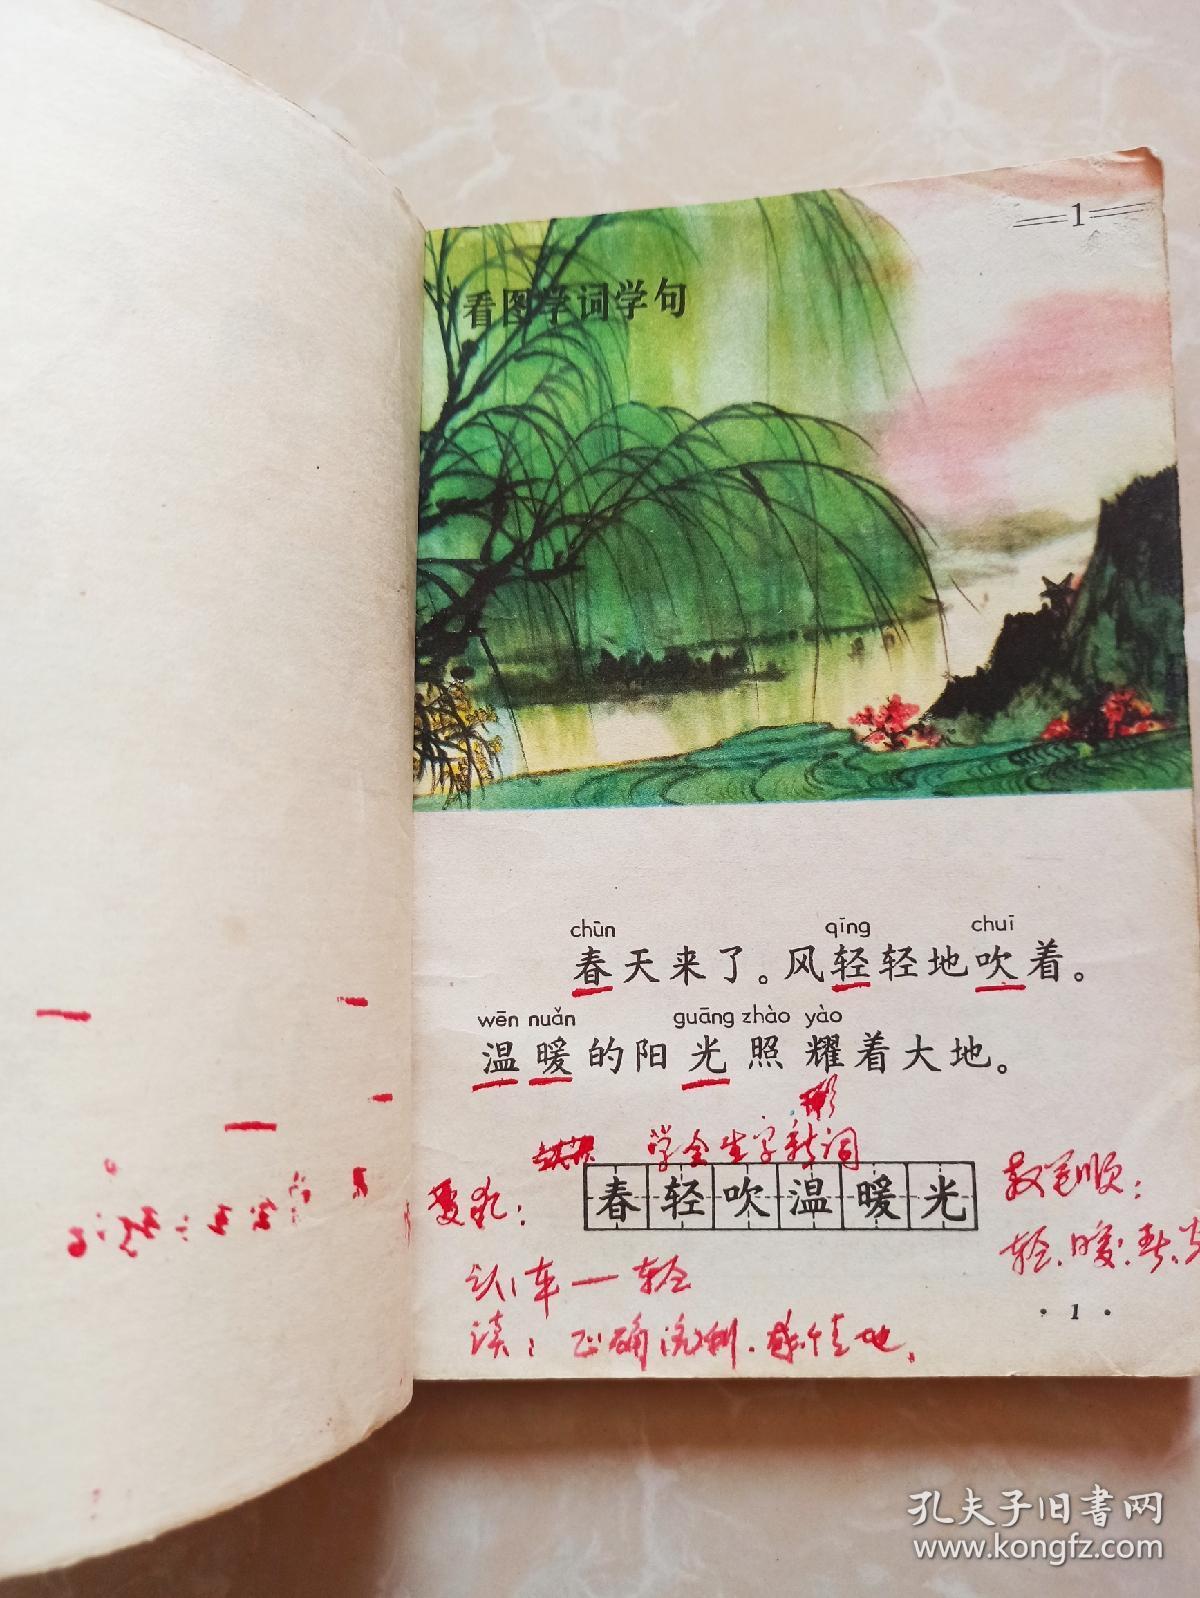 1
看图学词学句
chūn qīng chuī
春天来了。风轻轻地吹着。
wēn nuǎn guāng zhào yào
温暖的阳光照耀着大地。
学会生字新词
要求：
春轻吹温暖光
教笔顺：
认：车—轻
轻、暖、春、光
读：正确流利、有感情地
·1·
孔夫子旧书网
www.kongfz.com